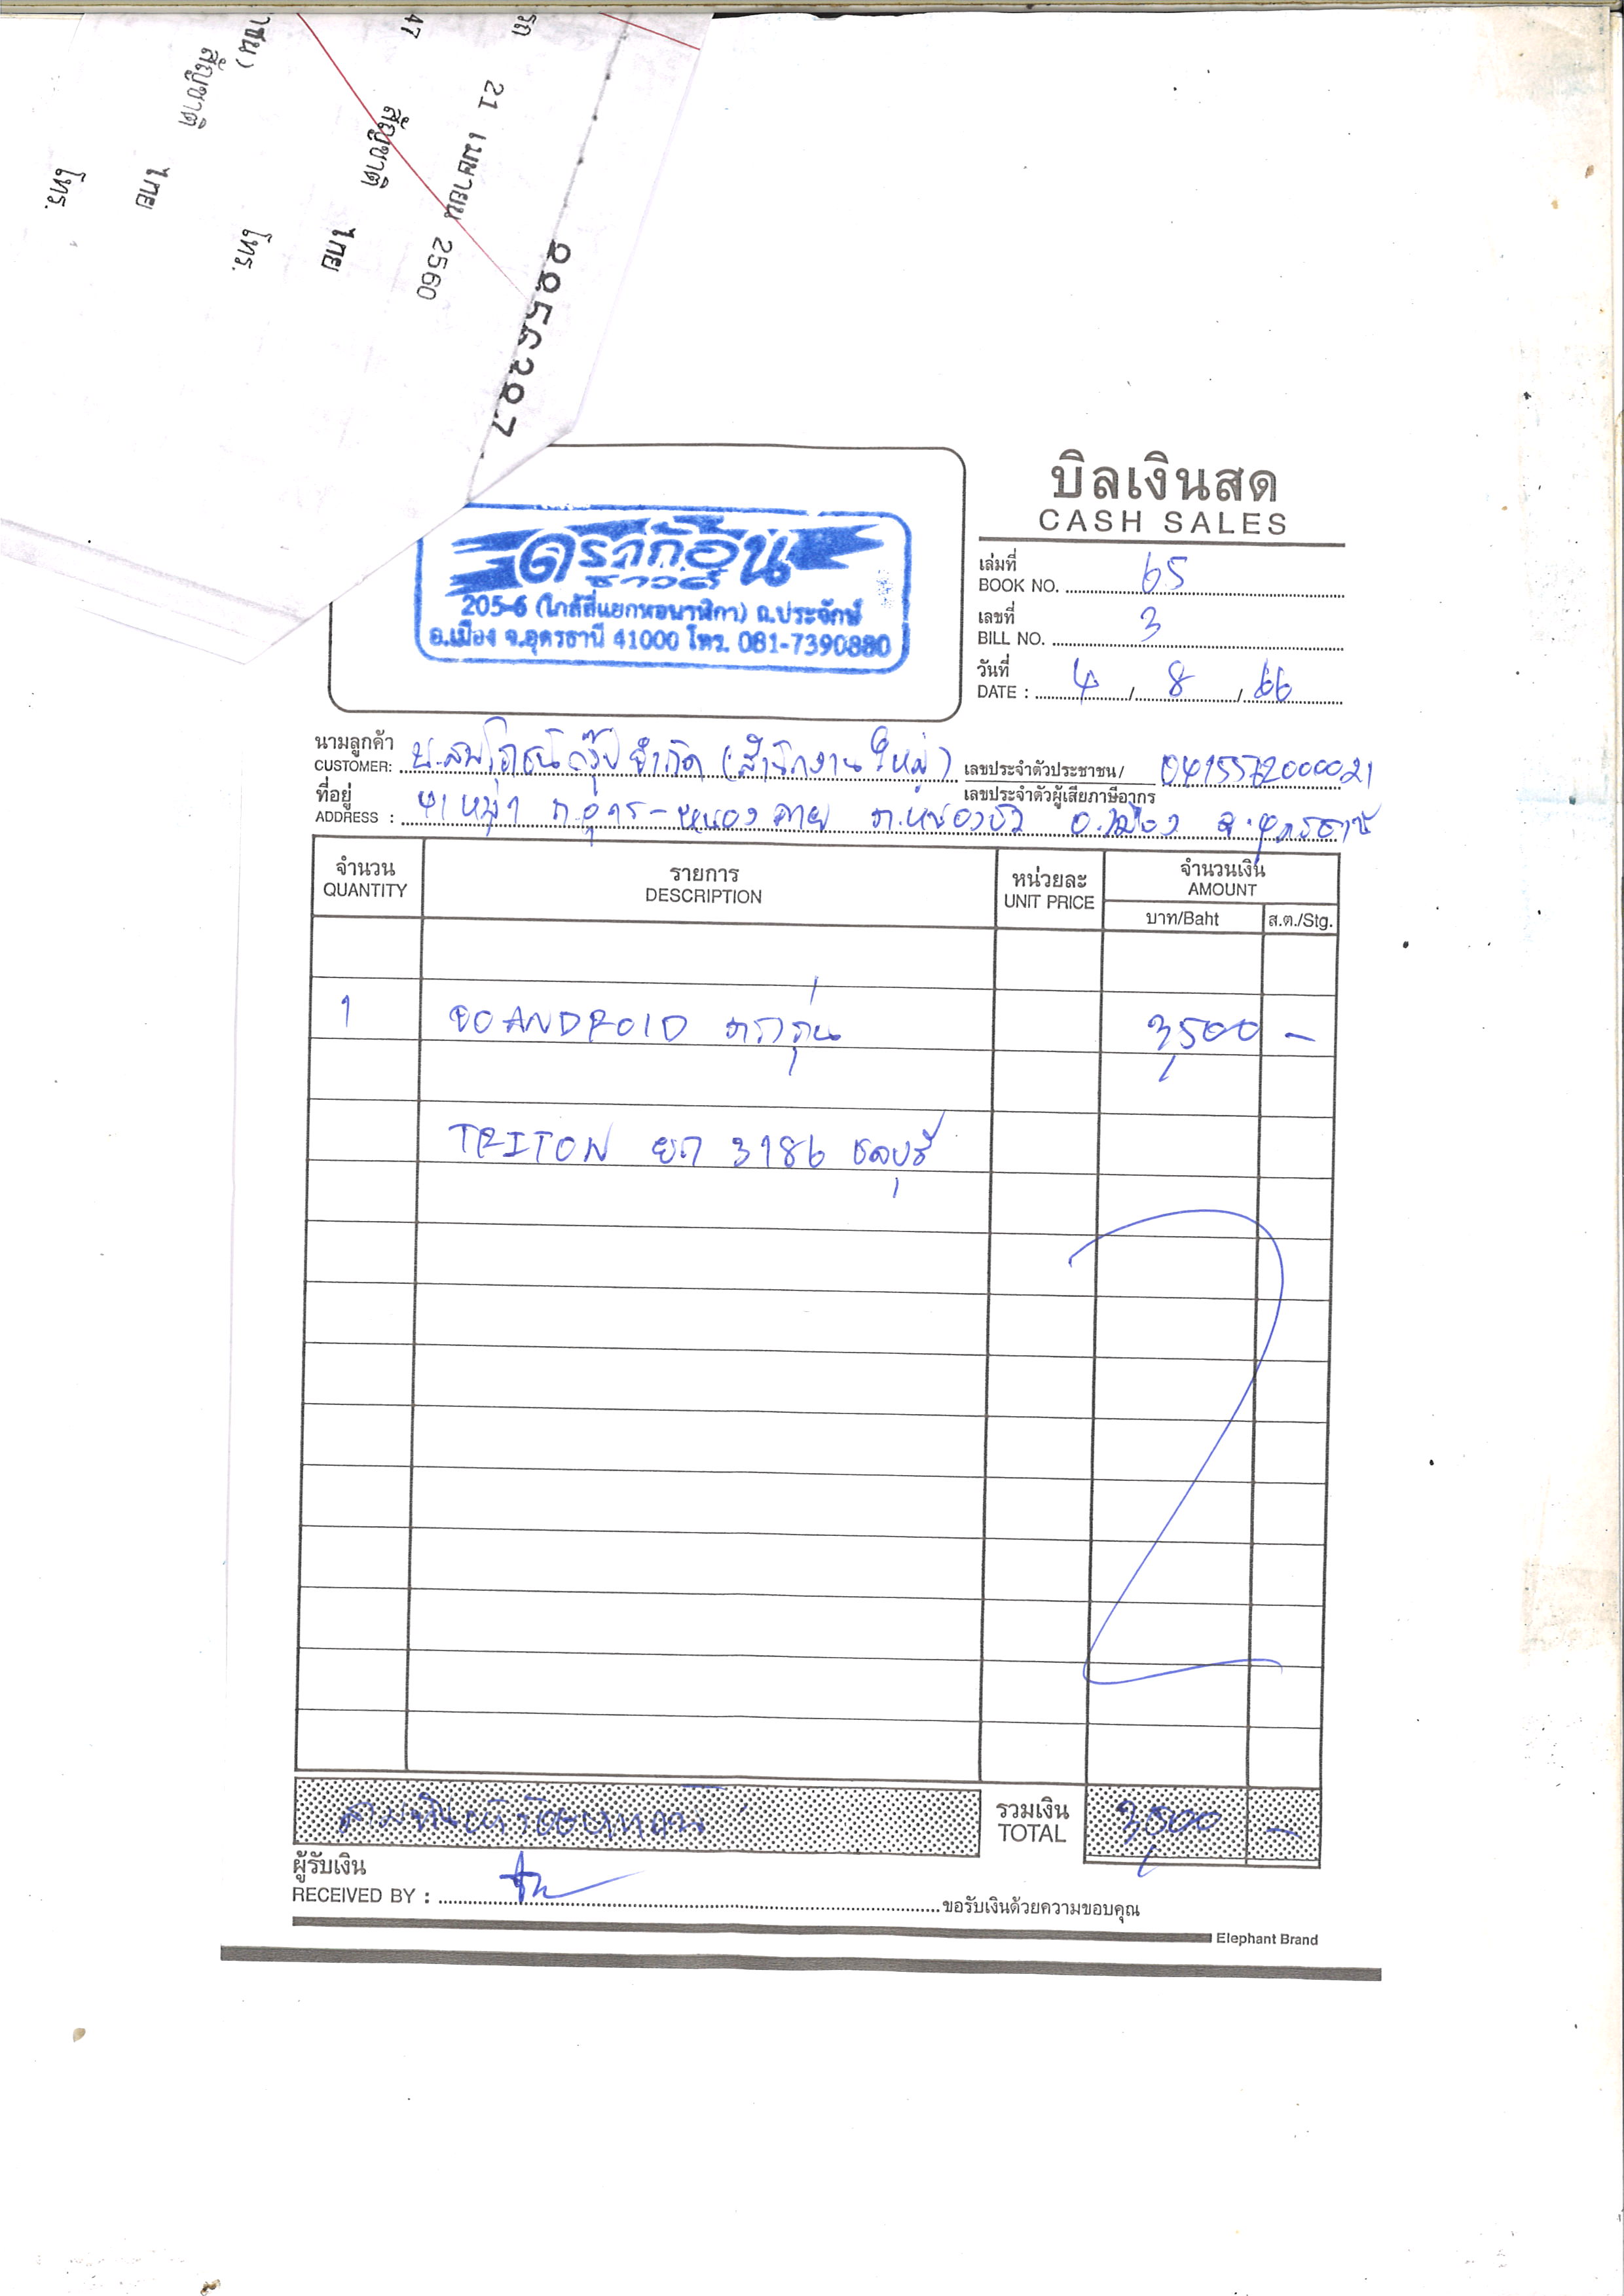 าชน)
สัญชาติ
ไทย
โทร.
47
สัญชาติ
ไทย
โทร.
รถ
21 เมษายน 2560
บิลเงินสด
CASH SALES
ดราก้อน
ซาวด์
205-6 (ใกล้สี่แยกหอนาฬิกา) ถ.ประจักษ์
อ.เมือง จ.อุดรธานี 41000 โทร. 081-7390880
เล่มที่
BOOK NO. 65
เลขที่
BILL NO. 3
วันที่
DATE : 4 / 8 / 66
นามลูกค้า
CUSTOMER: กรุ๊ป จำกัด (สำนักงานใหญ่) เลขประจำตัวประชาชน/ 0415572000021
เลขประจำตัวผู้เสียภาษีอากร
ที่อยู่
ADDRESS : ถ.อุดร-หนองคาย ต.หนองบัว อ.เมือง จ.อุดรธานี
จำนวน รายการ หน่วยละ จำนวนเงิน
QUANTITY DESCRIPTION UNIT PRICE AMOUNT
บาท/Baht ส.ต./Stg.
1 จอ ANDROID ตรงรุ่น 3,500 -
TRITON 3186 ชลบุรี
สามพันห้าร้อยบาทถ้วน รวมเงิน 3,500 -
TOTAL
ผู้รับเงิน
RECEIVED BY : ขอรับเงินด้วยความขอบคุณ
Elephant Brand